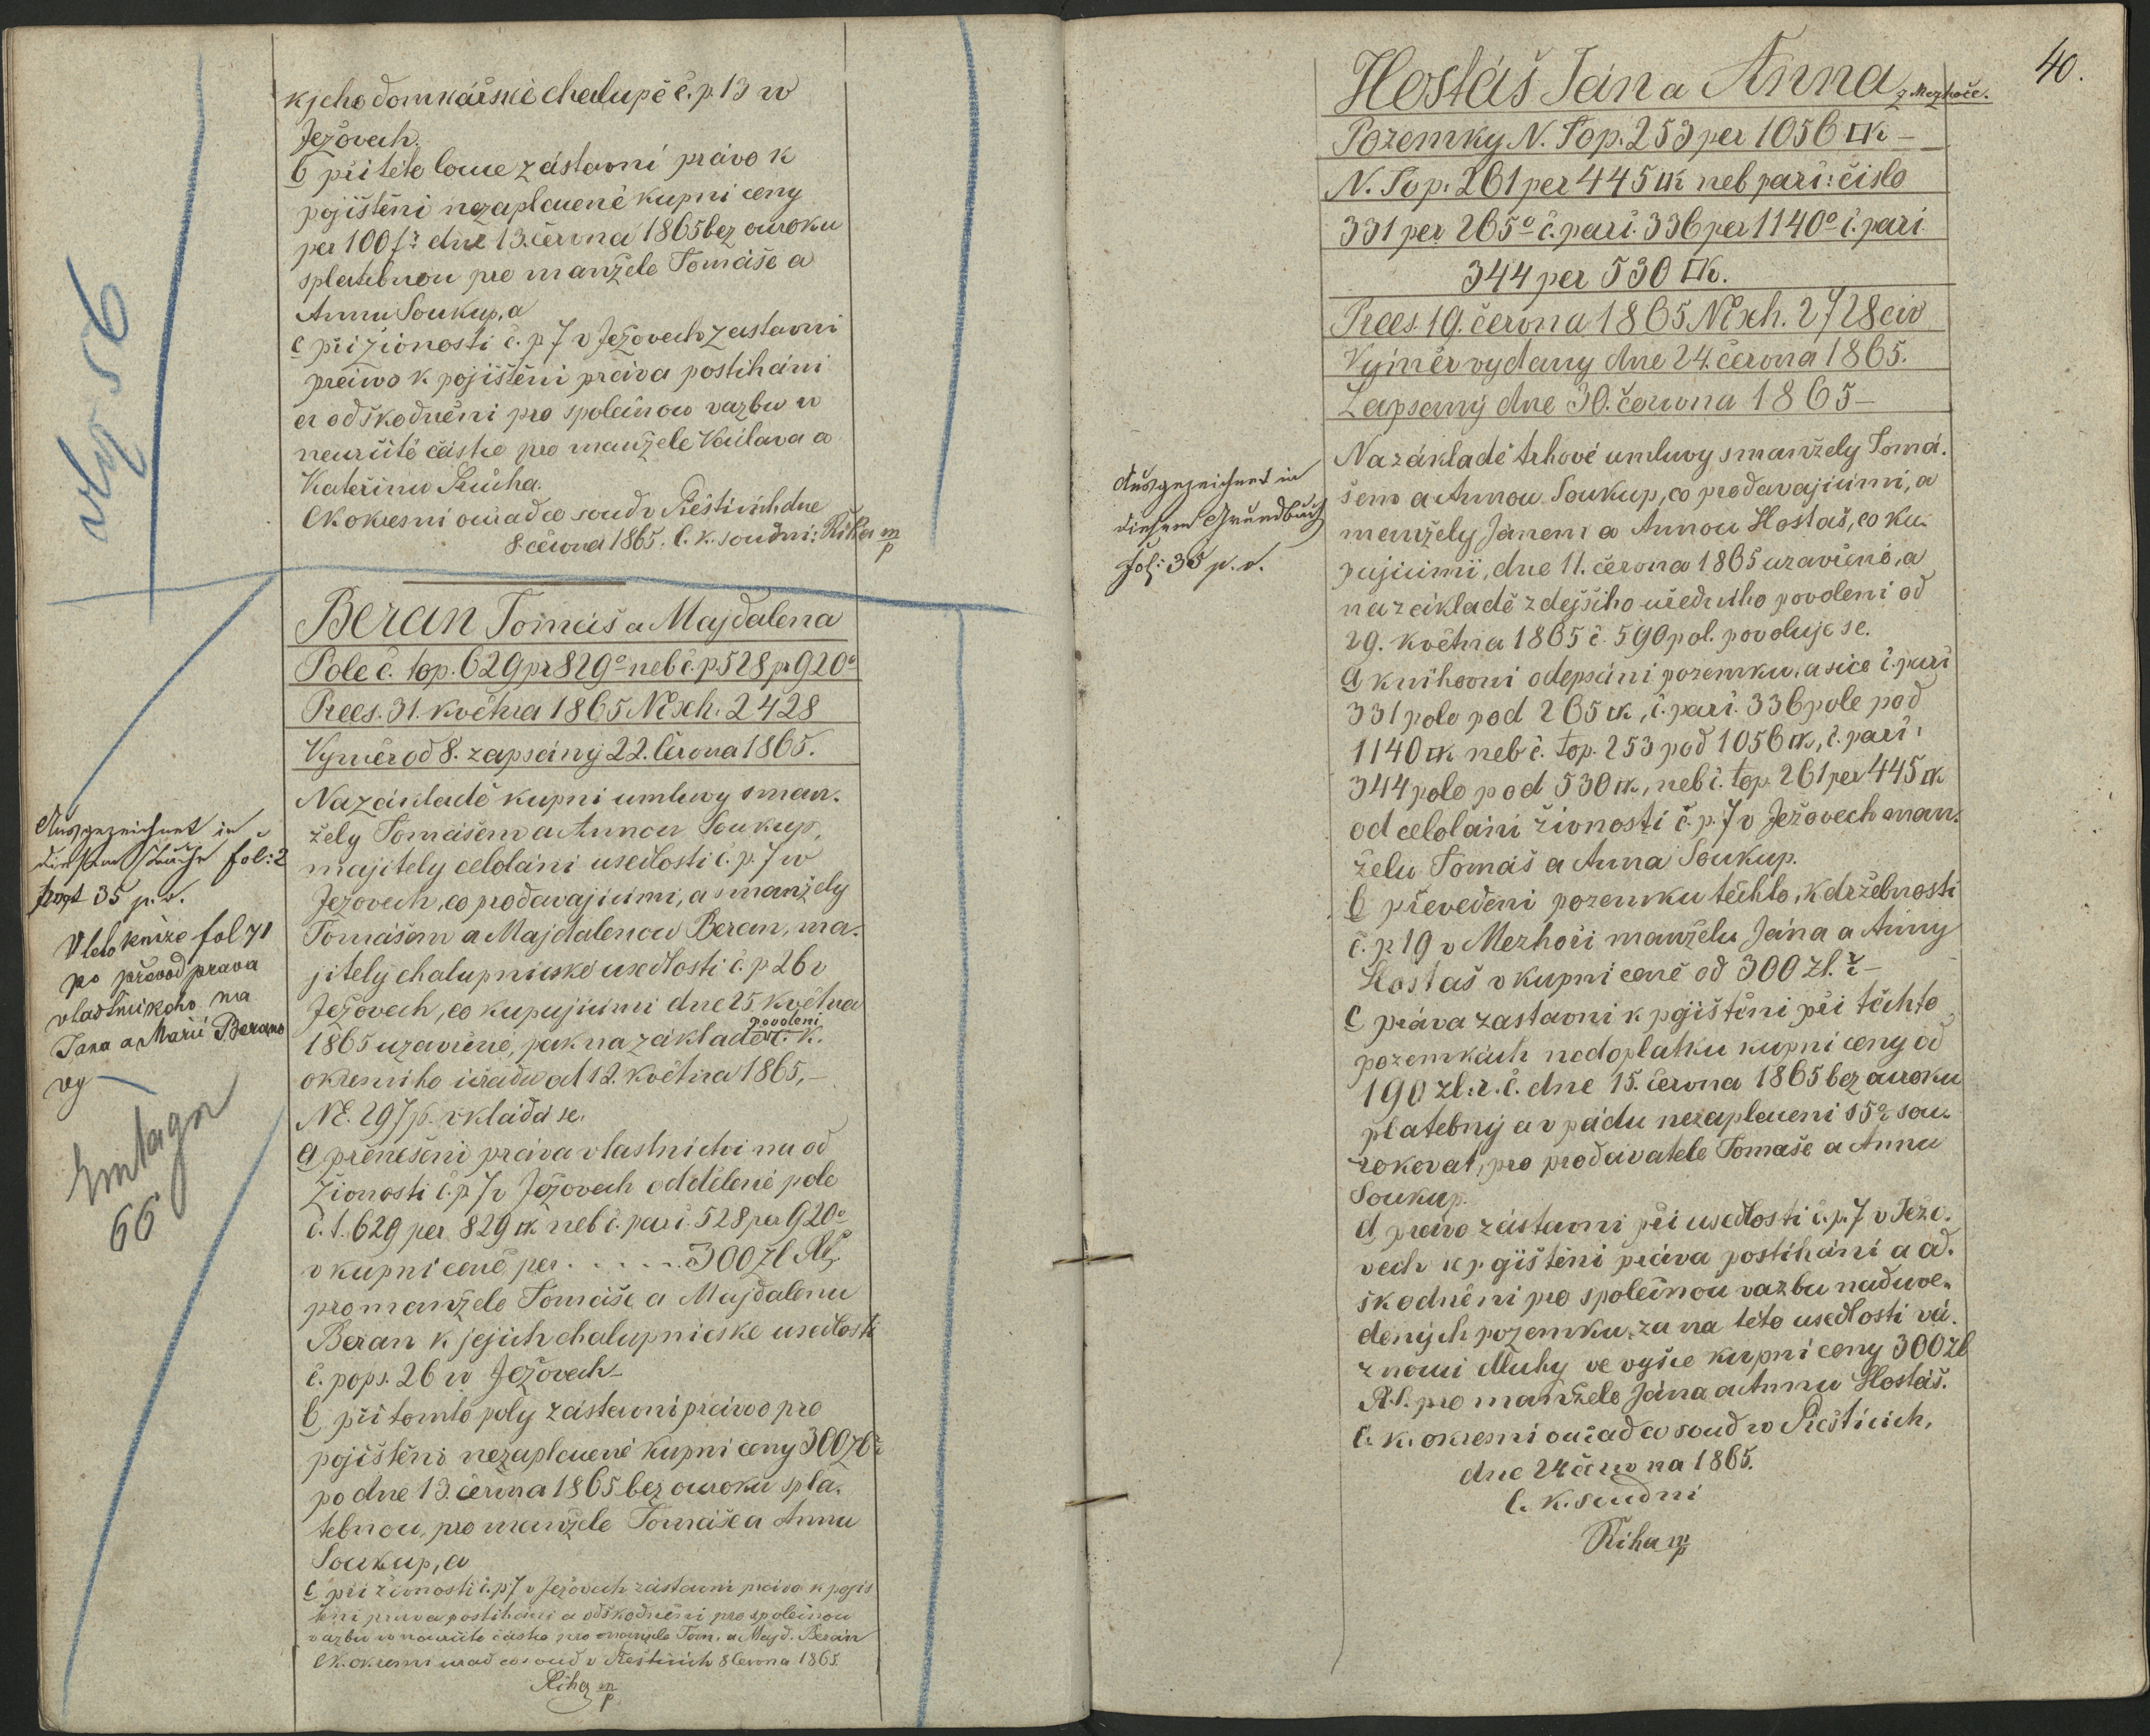 k jeho domkářské chalupě č. p. 13 w
Ježovech.
b při této louce zástavní právo k
pojištění nezaplacené kupní ceny
per 100 fr dne 13. června 1865 bez ouroku
splatebnou pro manžele Tomáše a
Annu Soukup, a
c při živnosti č. p 7 v Ježovech zástavní
právo k pojištění práva postihání
a odškodnění pro společnou vazbu v
neurčité částce pro manžele Václava a
Kateřinu
Ck okresní ouřad co soud v Přešticích dne
8. června 1865. C. k. soudní: Říha m/p
vly 56
Beran Tomáš a Majdalena
Pole č. top. 629 pr 829° neb č. p 528 pr 920°
Prees. 31. května 1865 N exh. 2428
Výměr od 8. zapsaný 22. června 1865.
Na základě kupní umluvy s man-
žely Tomášem a Annou Soukup,
majitely celoláni usedlosti č. p. 7 w
Ježovech, co prodavajícimi, a s manžely
Tomášem a Majdalenou Beran, ma-
jitely chalupnické usedlosti č. p 26 v
Ježovech, co kupujícimi dne 25. května
1865 uzavřené, pak na základě povolení c. k.
okresního úřadu od 12. května 1865,-
NE. 297/p. vkládá se.
a přenešení práva vlastnictví na od
živnosti č. p 7 v Ježovech oddělené pole
č. t. 629 per 829 □K neb č. parc. 528 per 920°
v kupní ceně per . . . . . . 300 zl Rč
pro manžele Tomáše a Majdalenu
Beran k jejich chalupnické usedlosti
č. pops. 26 w Ježovech-
b, při tomto poly zástavní právo pro
pojištění nezaplacené kupní ceny 300 zl rč
po dne 13. června 1865 bez ouroku spla-
tebnou, pro manžele Tomáše a Annu
Soukup, a
c při živnosti č. p 7 v Ježovech zástavní právo k pojiš
tění práva postihání a odškodnění pro společnou
vazbu v neurčité částce pro manžele Tom. a Majd. Beran
Ck. okresní úřad co soud v Přešticích 8 června 1865.
Říha m/p
Ausgezeichnet in
diesem Buche fol: 2
35 p. v.
V této knize fol 71
po převod prava
vlastnickeho na
Jana a Marii Beranovy
66
40.
Hostaš Ján a Anna z Mezhoče.
Pozemky N. Top. 253 per 1056 □K -
N. Top. 261 per 445 □K neb parc: číslo
331 per 265° č. parc. 336 per 1140° č. parc.
344 per 530 □K.
Prees. 19. června 1865 N exh. 2728 civ
Výměr vydany dne 24. června 1865.
Zapsaný dne 30. června 1865-
Ausgezeichnet in
diesem Grundbuch
Fol: 35 p. v.
Na základě trhové umluvy s manžely Tomá-
šem a Annou Soukup, co prodavajícimi, a
manžely Janem a Annou Hostaš, co ku-
pujícimi, dne 11. června 1865 uzavřené, a
na základě zdejšího uředního povolení od
29. května 1865 č. 590 pol. povoluje se.
a knihovní odepsání pozemku, a sice č. parc
331 pole pod 265 □K, č. parc. 336 pole pod
1140 □K neb č. top. 253 pod 1056 □K, č. parc:
344 pole pod 530 □K, neb č. top. 261 per 445 □K
od celoláni živnosti č. p. 7 v Ježovech man-
želu Tomáš a Anna Soukup.
b převedení pozemku těchto, k držebnosti
č. p. 19 v Mezhoči manželu Jána a Anny
Hostaš v kupní ceně od 300 zl. rč-
c práva zastavní k pojištění při těchto
pozemkách nedoplatku kupní ceny od
190 zl. r. č. dne 15. června 1865 bez ouroku
platebný a v pádu nezaplacení s 5% sou-
rokovat, pro prodavatele Tomáše a Annu
Soukup.
d, právo zástavní při usedlosti č. p. 7 v Ježo-
vech k pojištění práva postihání a od-
škodnění pro společnou vazbu naduve-
dených pozemku, za na této usedlosti vá-
znoucí dluhy ve výšce kupní ceny 300 zl
R. č. pro manžele Jána a Annu Hostaš.
C. k. okresní ouřad co soud w Přešticích,
dne 24 června 1865.
C. k. soudní
Říha m/p